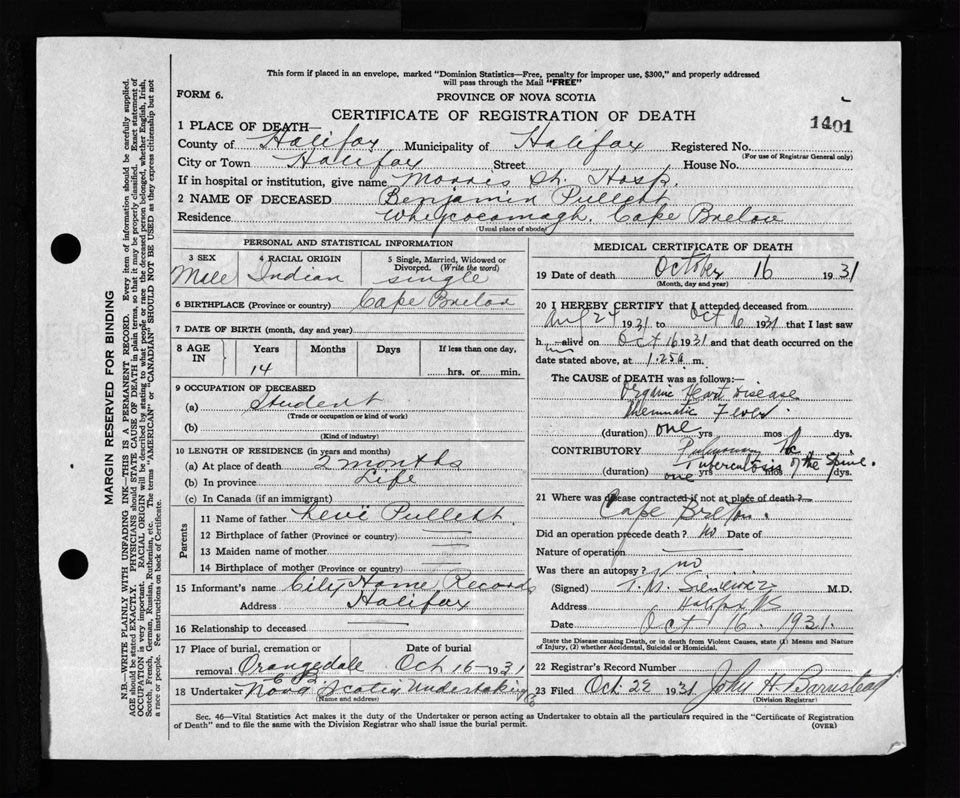 This form if placed in an envelope, marked "Dominion Statistics—Free, penalty for improper use, $300," and properly addressed
will pass through the Mail "FREE"
FORM 6.
PROVINCE OF NOVA SCOTIA
CERTIFICATE OF REGISTRATION OF DEATH
1401
1 PLACE OF DEATH—
County of Halifax Municipality of Halifax Registered No.
(For use of Registrar General only)
City or Town Halifax Street House No.
If in hospital or institution, give name Morris St. Hosp.
2 NAME OF DECEASED Benjamin Pullett
Residence Whycocomagh, Cape Breton
(Usual place of abode)
PERSONAL AND STATISTICAL INFORMATION
3 SEX 4 RACIAL ORIGIN 5 Single, Married, Widowed or
Divorced. (Write the word)
Male Indian single
6 BIRTHPLACE (Province or country) Cape Breton
7 DATE OF BIRTH (month, day and year)
8 AGE IN Years Months Days If less than one day,
14 hrs. or min.
9 OCCUPATION OF DECEASED
(a) Student
(Trade or occupation or kind of work)
(b)
(Kind of industry)
10 LENGTH OF RESIDENCE (in years and months)
(a) At place of death 2 months
(b) In province Life
(c) In Canada (if an immigrant)
Parents
11 Name of father Levi Pullett
12 Birthplace of father (Province or country)
13 Maiden name of mother
14 Birthplace of mother (Province or country)
15 Informant's name City Home Records
Address Halifax
16 Relationship to deceased
17 Place of burial, cremation or Date of burial
removal Orangedale Oct 16-1931
C.B.
18 Undertaker Nova Scotia Undertaking Co
(Name and address)
MEDICAL CERTIFICATE OF DEATH
19 Date of death October 16 1931
(Month, day and year)
20 I HEREBY CERTIFY that I attended deceased from
Aug 24 1931 to Oct 16 1931 that I last saw
him alive on Oct 16 1931 and that death occurred on the
date stated above, at 1.25a m.
The CAUSE of DEATH was as follows:—
Organic Heart Disease
Rheumatic Fever.
(duration) one yrs mos dys.
CONTRIBUTORY Pulmonary Tbc.
Tuberculosis of the Spine.
(duration) one yrs mos dys.
21 Where was disease contracted if not at place of death?
Cape Breton.
Did an operation precede death? no Date of
Nature of operation
Was there an autopsy? no
(Signed) T. M. Sieniewicz M.D.
Address Halifax NS
Date Oct 16. 1931.
State the Disease causing Death, or in death from Violent Causes, state (1) Means and Nature
of Injury, (2) whether Accidental, Suicidal or Homicidal.
22 Registrar's Record Number
23 Filed Oct 22 1931 John H. Barnstead
(Division Registrar)
Sec. 46—Vital Statistics Act makes it the duty of the Undertaker or person acting as Undertaker to obtain all the particulars required in the "Certificate of Registration
of Death" and to file the same with the Division Registrar who shall issue the burial permit.
(OVER)
MARGIN RESERVED FOR BINDING
N.B.—WRITE PLAINLY WITH UNFADING INK—THIS IS A PERMANENT RECORD. Every item of information should be carefully supplied.
AGE should be stated EXACTLY. PHYSICIANS should STATE CAUSE OF DEATH in plain terms, so that it may be properly classified. Exact statement of
OCCUPATION is very important. RACIAL ORIGIN will be described by stating to what people or race the deceased person belonged, whether English, Irish,
Scotch, French, German, Russian, Ruthenian, etc. The terms "AMERICAN" or "CANADIAN" SHOULD NOT BE USED as they express citizenship but not
a race or people. Fee instructions on back of Certificate.